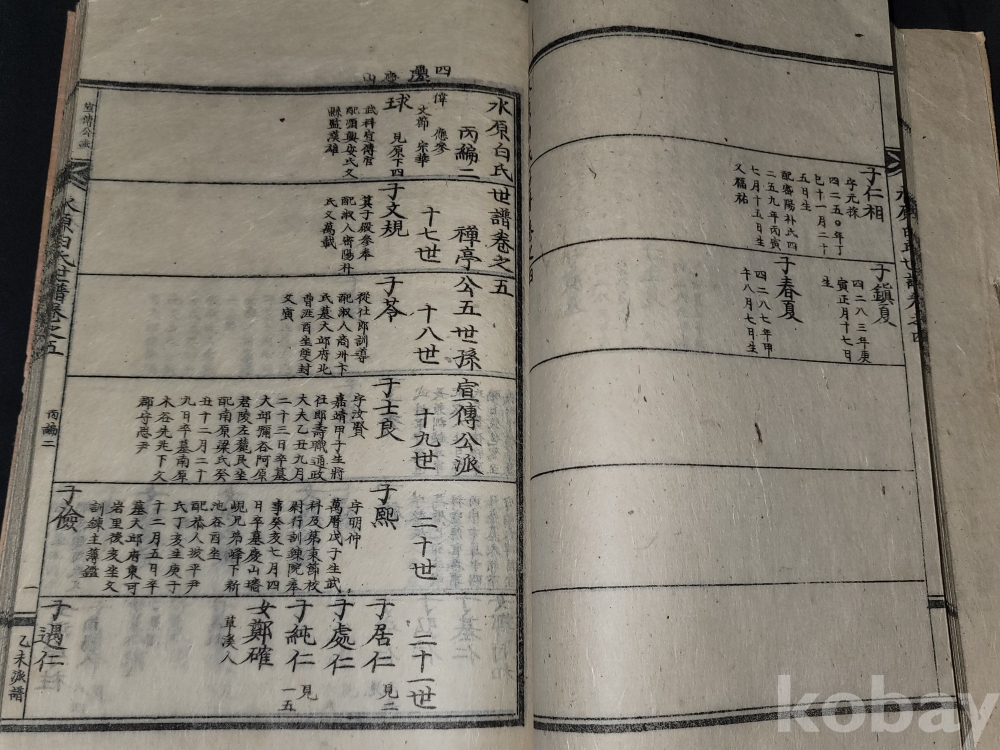 子仁相
字元採
四二五〇年丁
巳十一月二十
五日生
配密陽朴氏四
二五九年丙寅
七月十五日生
父福祐
子鎭夏
四二八三年庚
寅正月十七日
生
子春夏
四二八七年甲
午八月七日生
水原白氏世譜卷之四
水原白氏世譜卷之五
丙編二
禪亭公五世孫宣傳公派
十七世
十八世
十九世
二十世
二十一世
偉
應參
文節
宗華
球
見原下四
武科宣傳官
配順興安氏父
縣監漢雄
子文規
箕子殿參奉
配淑人密陽朴
氏父萬載
子苓
從仕郎訓導
配淑人商州卞
氏墓大邱府北
酉坐雙封
父實
子士良
字汝賢
嘉靖甲子生將
仕郎壽職通政
大夫乙丑九月
二十三日卒墓
大邱彌谷阿原
君陵左麓艮坐
配南原梁氏癸
丑十二月二十
九日卒墓南原
木谷先兆下父
郡守思尹
子熙
字明仲
萬曆戊子生武
科及第東節校
尉行訓練院奉
事癸亥七月四
日卒墓慶山璿
峴兄弟峰下新
池谷酉坐
配恭人坡平尹
氏丁亥生庚子
十二月五日卒
墓大邱府東可
岩里後亥坐父
訓鍊主簿鑑
子儉
子居仁
見二
子處仁
子純仁
見一五
女鄭確
草溪人
子遇仁
宣傳公派
水原白氏世譜卷之五
丙編二
一
乙未派譜
kobay